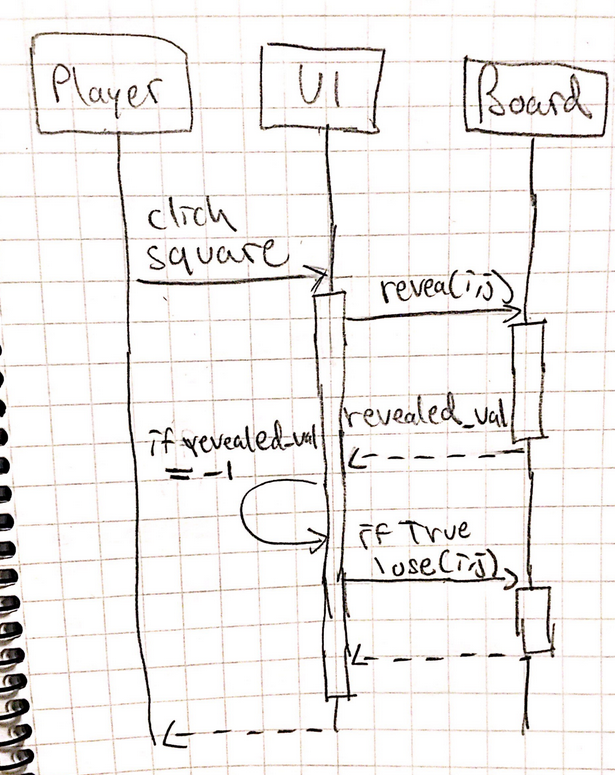 Player
UI
Board
click
square
reveal(i,j)
revealed_val
if revealed_val
== -1
if True
lose(i,j)